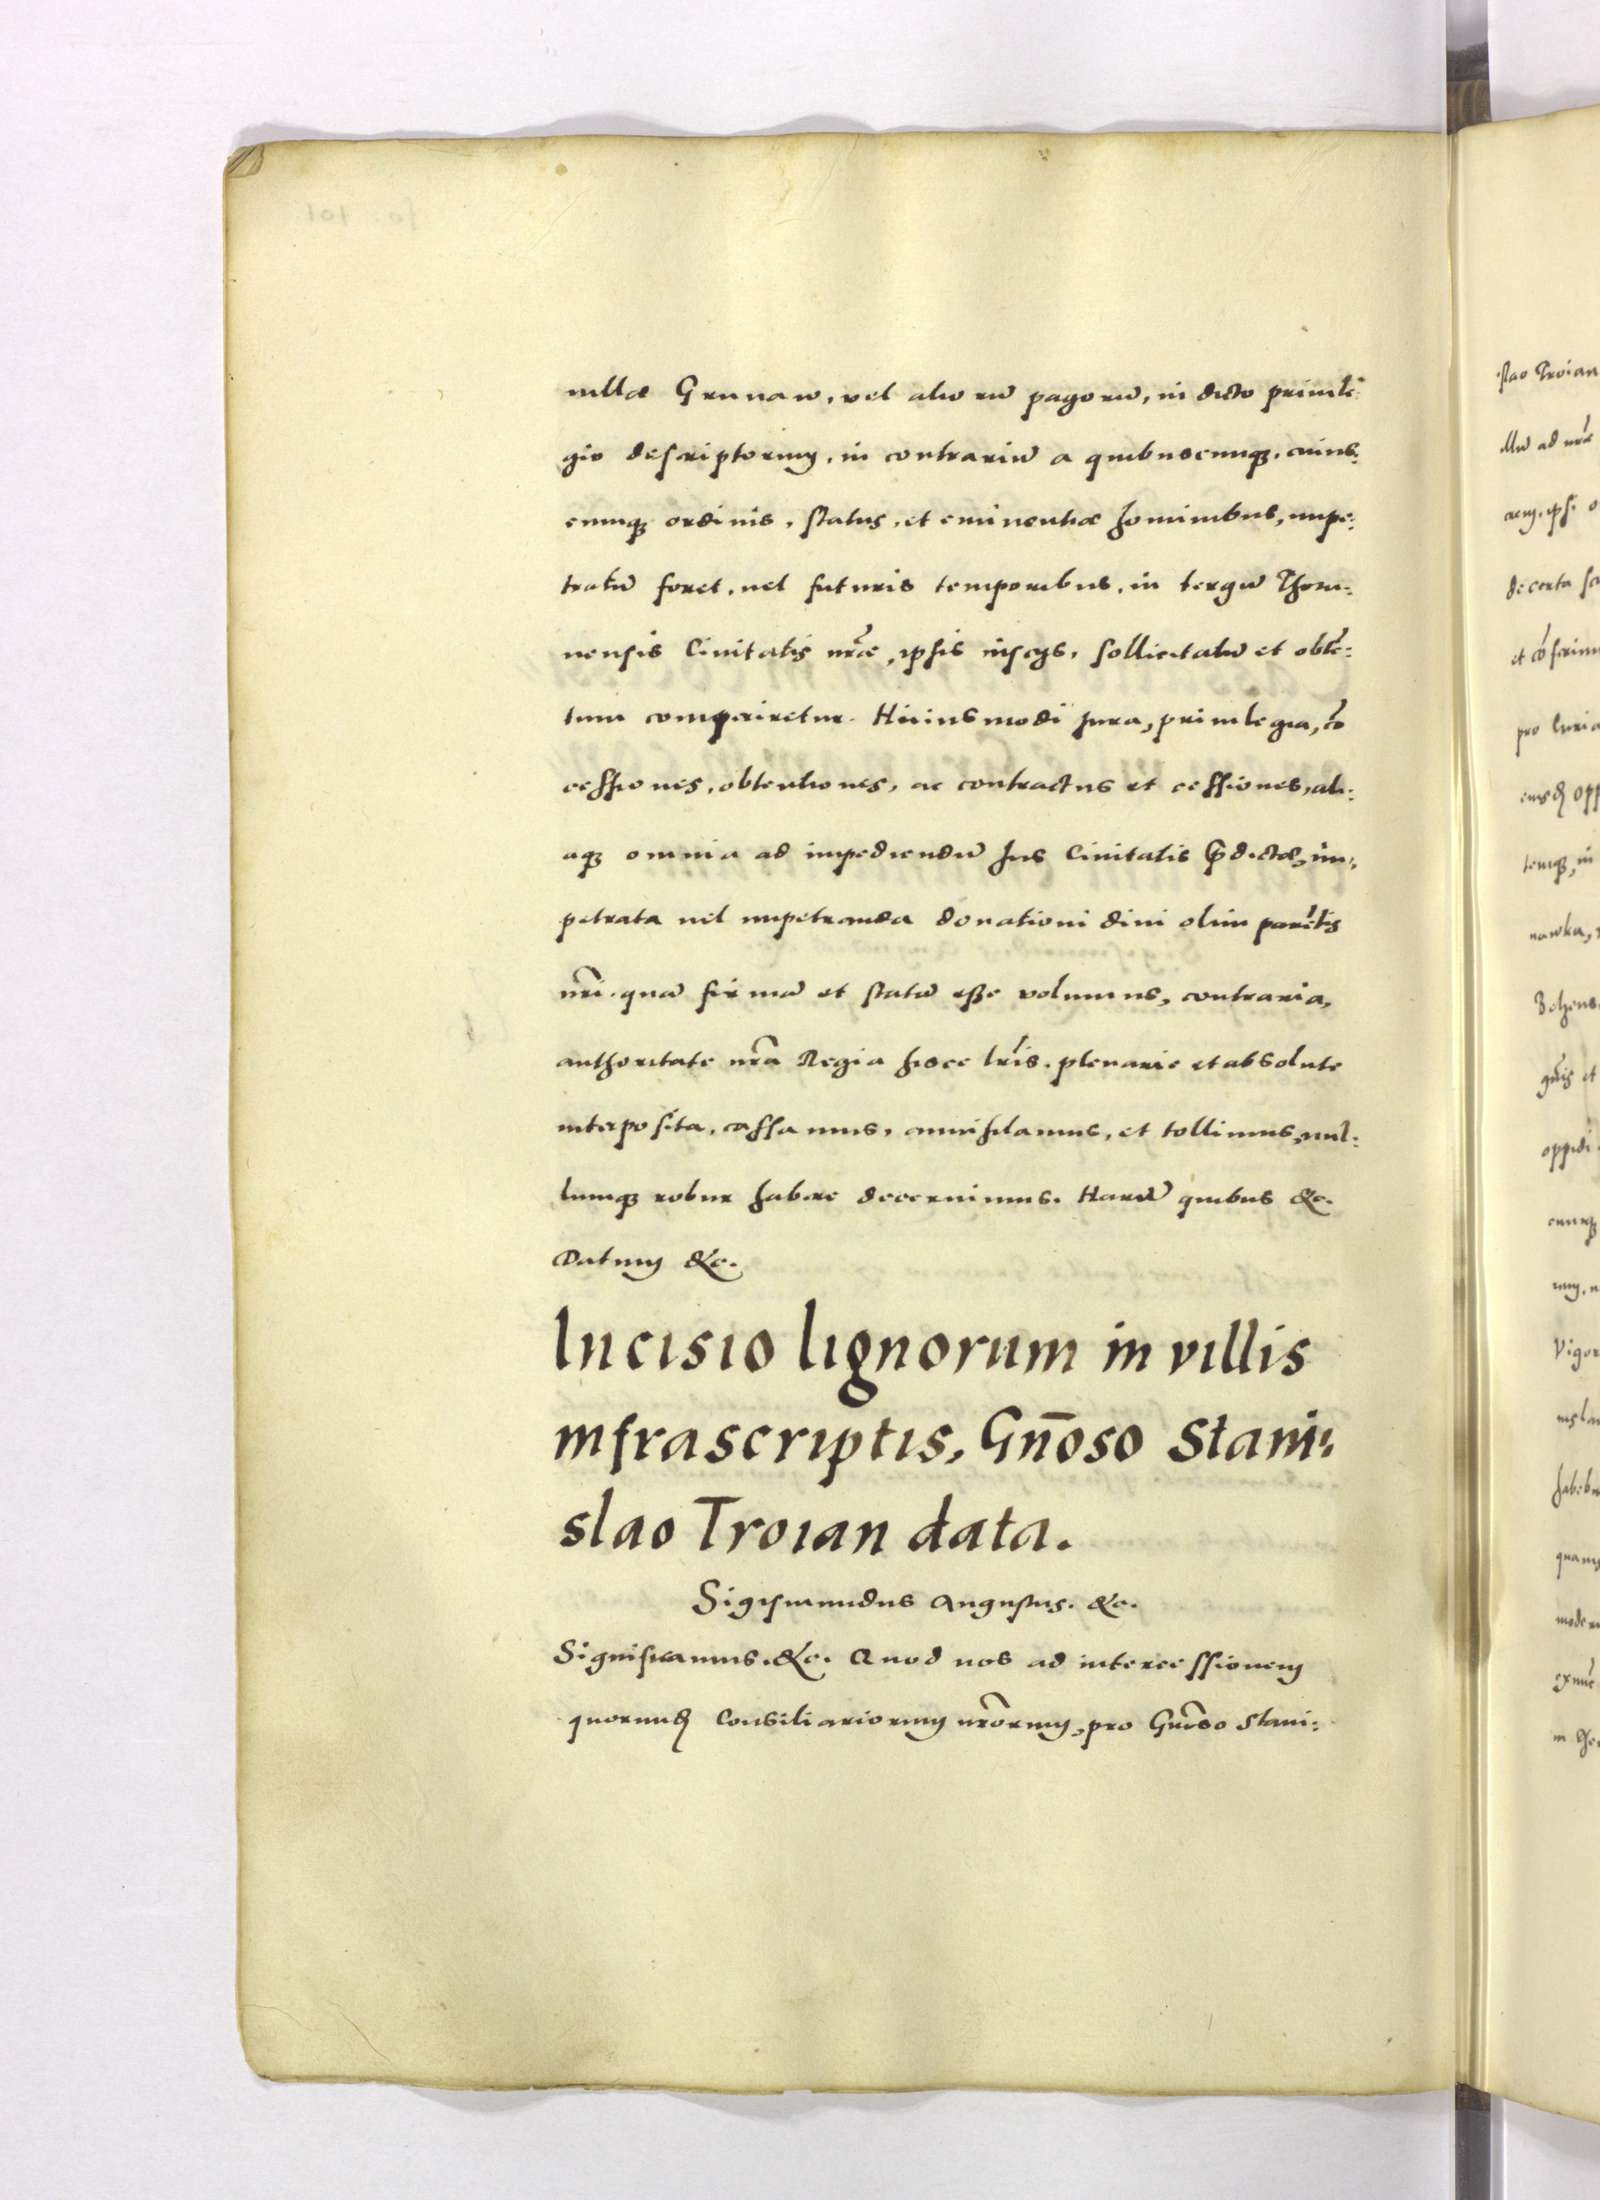 uillæ Grunaw, vel aliorũ pagorũ, in dicto priuile:
gio descriptorum, in contrariũ a quibuscunq̃, cuius:
cunq̃ ordinis, status, et eminentiæ hominibus, impe:
tratũ foret, uel futuris temporibus, in tergũ Thoru:
nensis Ciuitatis nr̃æ, ipsis insciis, sollicitatũ et obtẽ:
tum comperiretur. Huiusmodi Jura, priuilegia, cõ
cessiones, obtentiones, ac contractus et cessiones, ali:
aq̃ omnia ad impediendũ Jus Ciuitatis p̃dictæ, im:
petrata uel impetranda donationi diui olim parẽtis
nr̃i, quã firmã et statũ esse volumus, contraria,
authoritate nr̃a Regia hisce lr̃is, plenarie et absolute
interposita, cassamus, annihilamus, et tollimus, nul:
lumq̃ robur habere decernimus. Harũ quibus &c.
Datum &c.
Incisio lignorum in villis
infrascriptis, Gñoso Stani:
slao Troian data.
Sigismundus Augustus. &c.
Significamus. &c. Quod nos ad intercessionem
quorund̃ Consiliariorum nr̃orum, pro Gnõso Stani:
slao Troian
illũ ad nr̃æ
de certa
et cõferimu
pro Curia
nawka,
oppidi
habebu
quam
moder